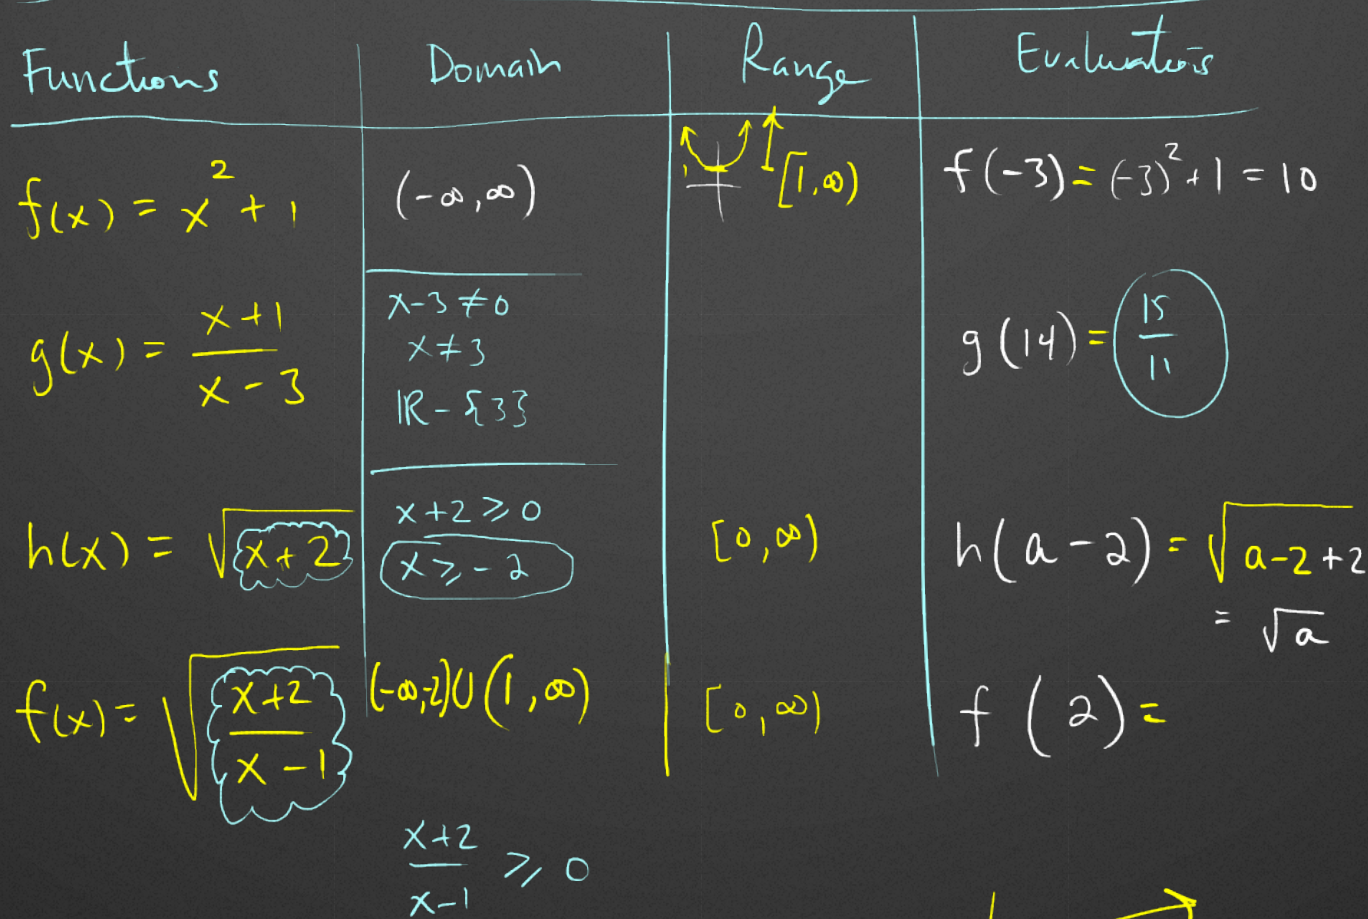 Functions Domain Range Evaluations
f(x) = x² + 1 (-∞,∞) [1,∞) f(-3) = (-3)² + 1 = 10
g(x) = \frac{x+1}{x-3} x-3 ≠ 0 g(14) = \frac{15}{11}
x ≠ 3
ℝ - {3}
h(x) = √(x+2) x+2 ⩾ 0 [0,∞) h(a-2) = √(a-2+2)
x ⩾ -2 = √a
f(x) = √(\frac{x+2}{x-1}) (-∞,-2)∪(1,∞) [0,∞) f(2) =
\frac{x+2}{x-1} ⩾ 0